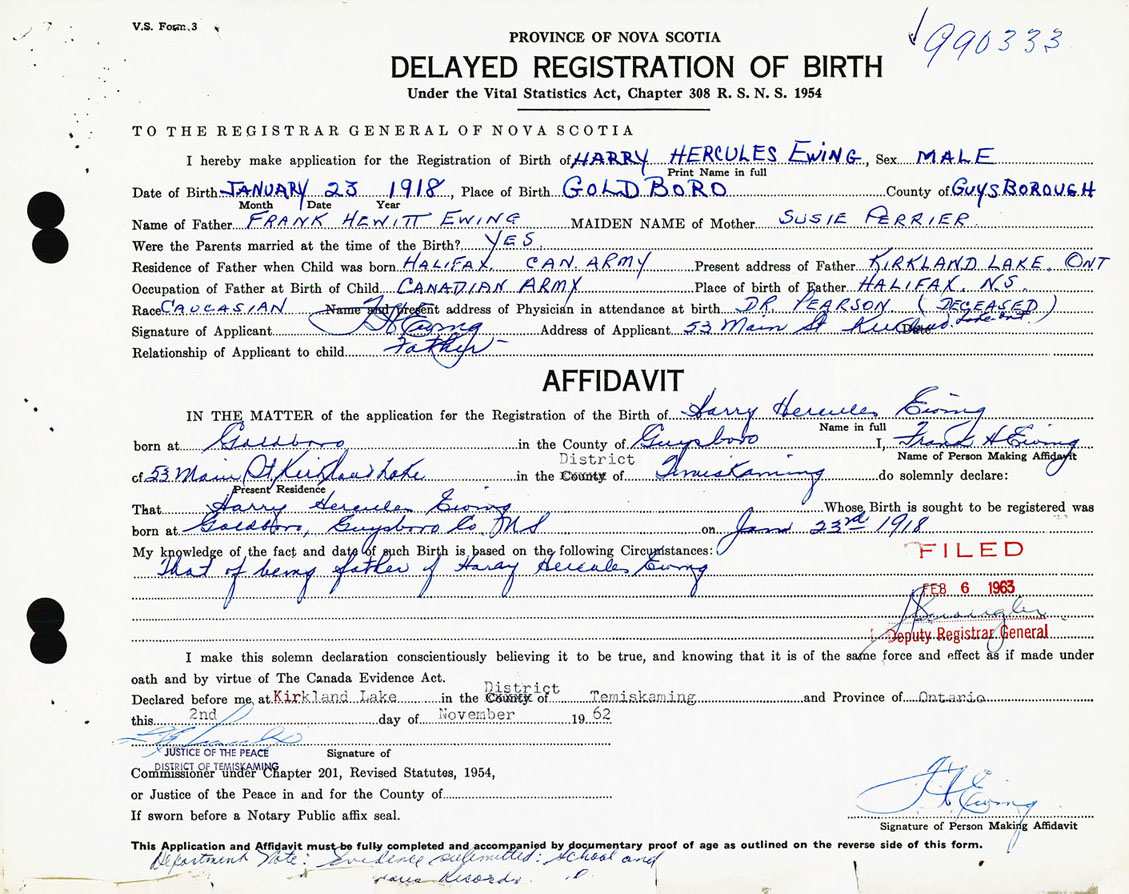 V.S. Form 3
990333
PROVINCE OF NOVA SCOTIA
DELAYED REGISTRATION OF BIRTH
Under the Vital Statistics Act, Chapter 308 R. S. N. S. 1954
TO THE REGISTRAR GENERAL OF NOVA SCOTIA
I hereby make application for the Registration of Birth of HARRY HERCULES EWING, Sex MALE
Print Name in full
Date of Birth JANUARY 23 1918, Place of Birth GOLDBORO County of GUYSBOROUGH
Month Date Year
Name of Father FRANK HEWITT EWING MAIDEN NAME of Mother SUSIE PERRIER
Were the Parents married at the time of the Birth? YES.
Residence of Father when Child was born HALIFAX. CAN. ARMY Present address of Father KIRKLAND LAKE. ONT
Occupation of Father at Birth of Child CANADIAN ARMY Place of birth of Father HALIFAX. N.S.
Race CAUCASIAN Name and present address of Physician in attendance at birth DR. PEARSON (DECEASED)
Signature of Applicant F H Ewing Address of Applicant 53 Main St Kirkland Lake Ont Date
Relationship of Applicant to child Father
AFFIDAVIT
IN THE MATTER of the application for the Registration of the Birth of Harry Hercules Ewing
Name in full
born at Goldboro in the County of Guysboro I, Frank H Ewing
District Name of Person Making Affidavit
of 53 Main St Kirkland Lake in the County of Temiskaming do solemnly declare:
Present Residence
That Harry Hercules Ewing Whose Birth is sought to be registered was
born at Goldboro, Guysboro Co. N S on Jan 23rd 1918
My knowledge of the fact and date of such Birth is based on the following Circumstances:
That of being father of Harry Hercules Ewing
FILED
FEB 6 1963
Deputy Registrar General
I make this solemn declaration conscientiously believing it to be true, and knowing that it is of the same force and effect as if made under
oath and by virtue of The Canada Evidence Act.
District
Declared before me at Kirkland Lake in the County of Temiskaming and Province of Ontario
this 2nd day of November 19 62
JUSTICE OF THE PEACE Signature of
DISTRICT OF TEMISKAMING
Commissioner under Chapter 201, Revised Statutes, 1954,
or Justice of the Peace in and for the County of
If sworn before a Notary Public affix seal.
F H Ewing
Signature of Person Making Affidavit
This Application and Affidavit must be fully completed and accompanied by documentary proof of age as outlined on the reverse side of this form.
Department Note: Evidence submitted: School and
Records.